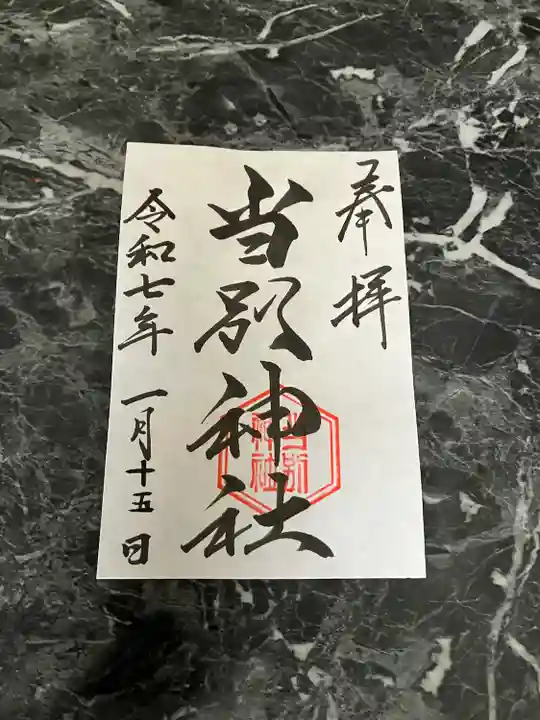 奉拝
当別神社
当別
神社
令和七年 一月十五日